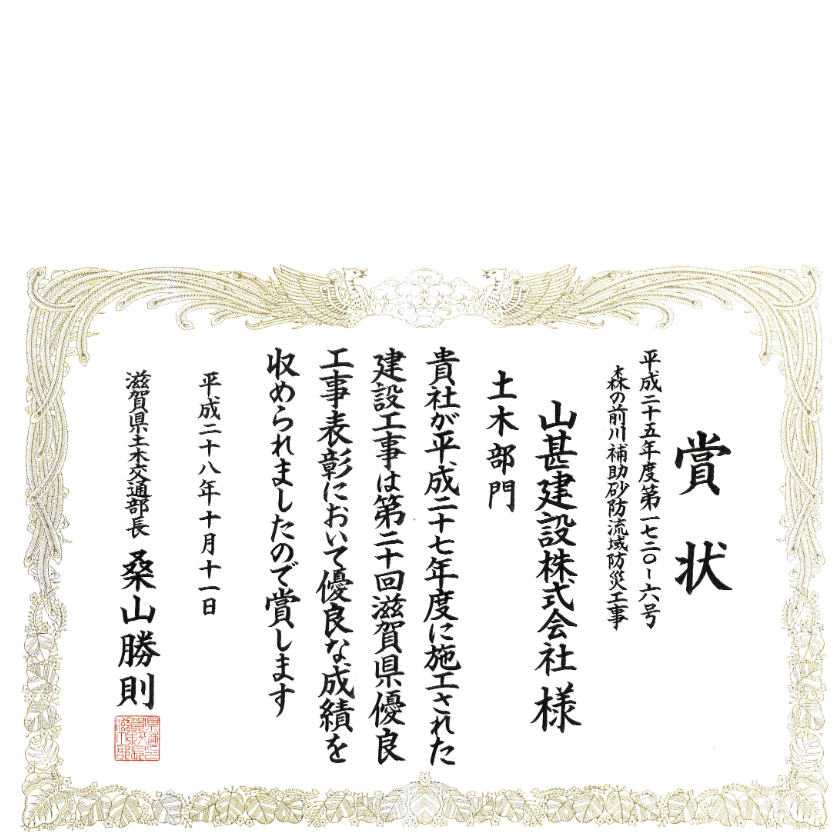 賞状
平成二十五年度第一七二〇－六号
森の前川補助砂防流域防災工事
山甚建設株式会社様
土木部門
貴社が平成二十七年度に施工された
建設工事は第二十回滋賀県優良
工事表彰において優良な成績を
収められましたので賞します
平成二十八年十月十一日
滋賀県土木交通部長 桑山勝則